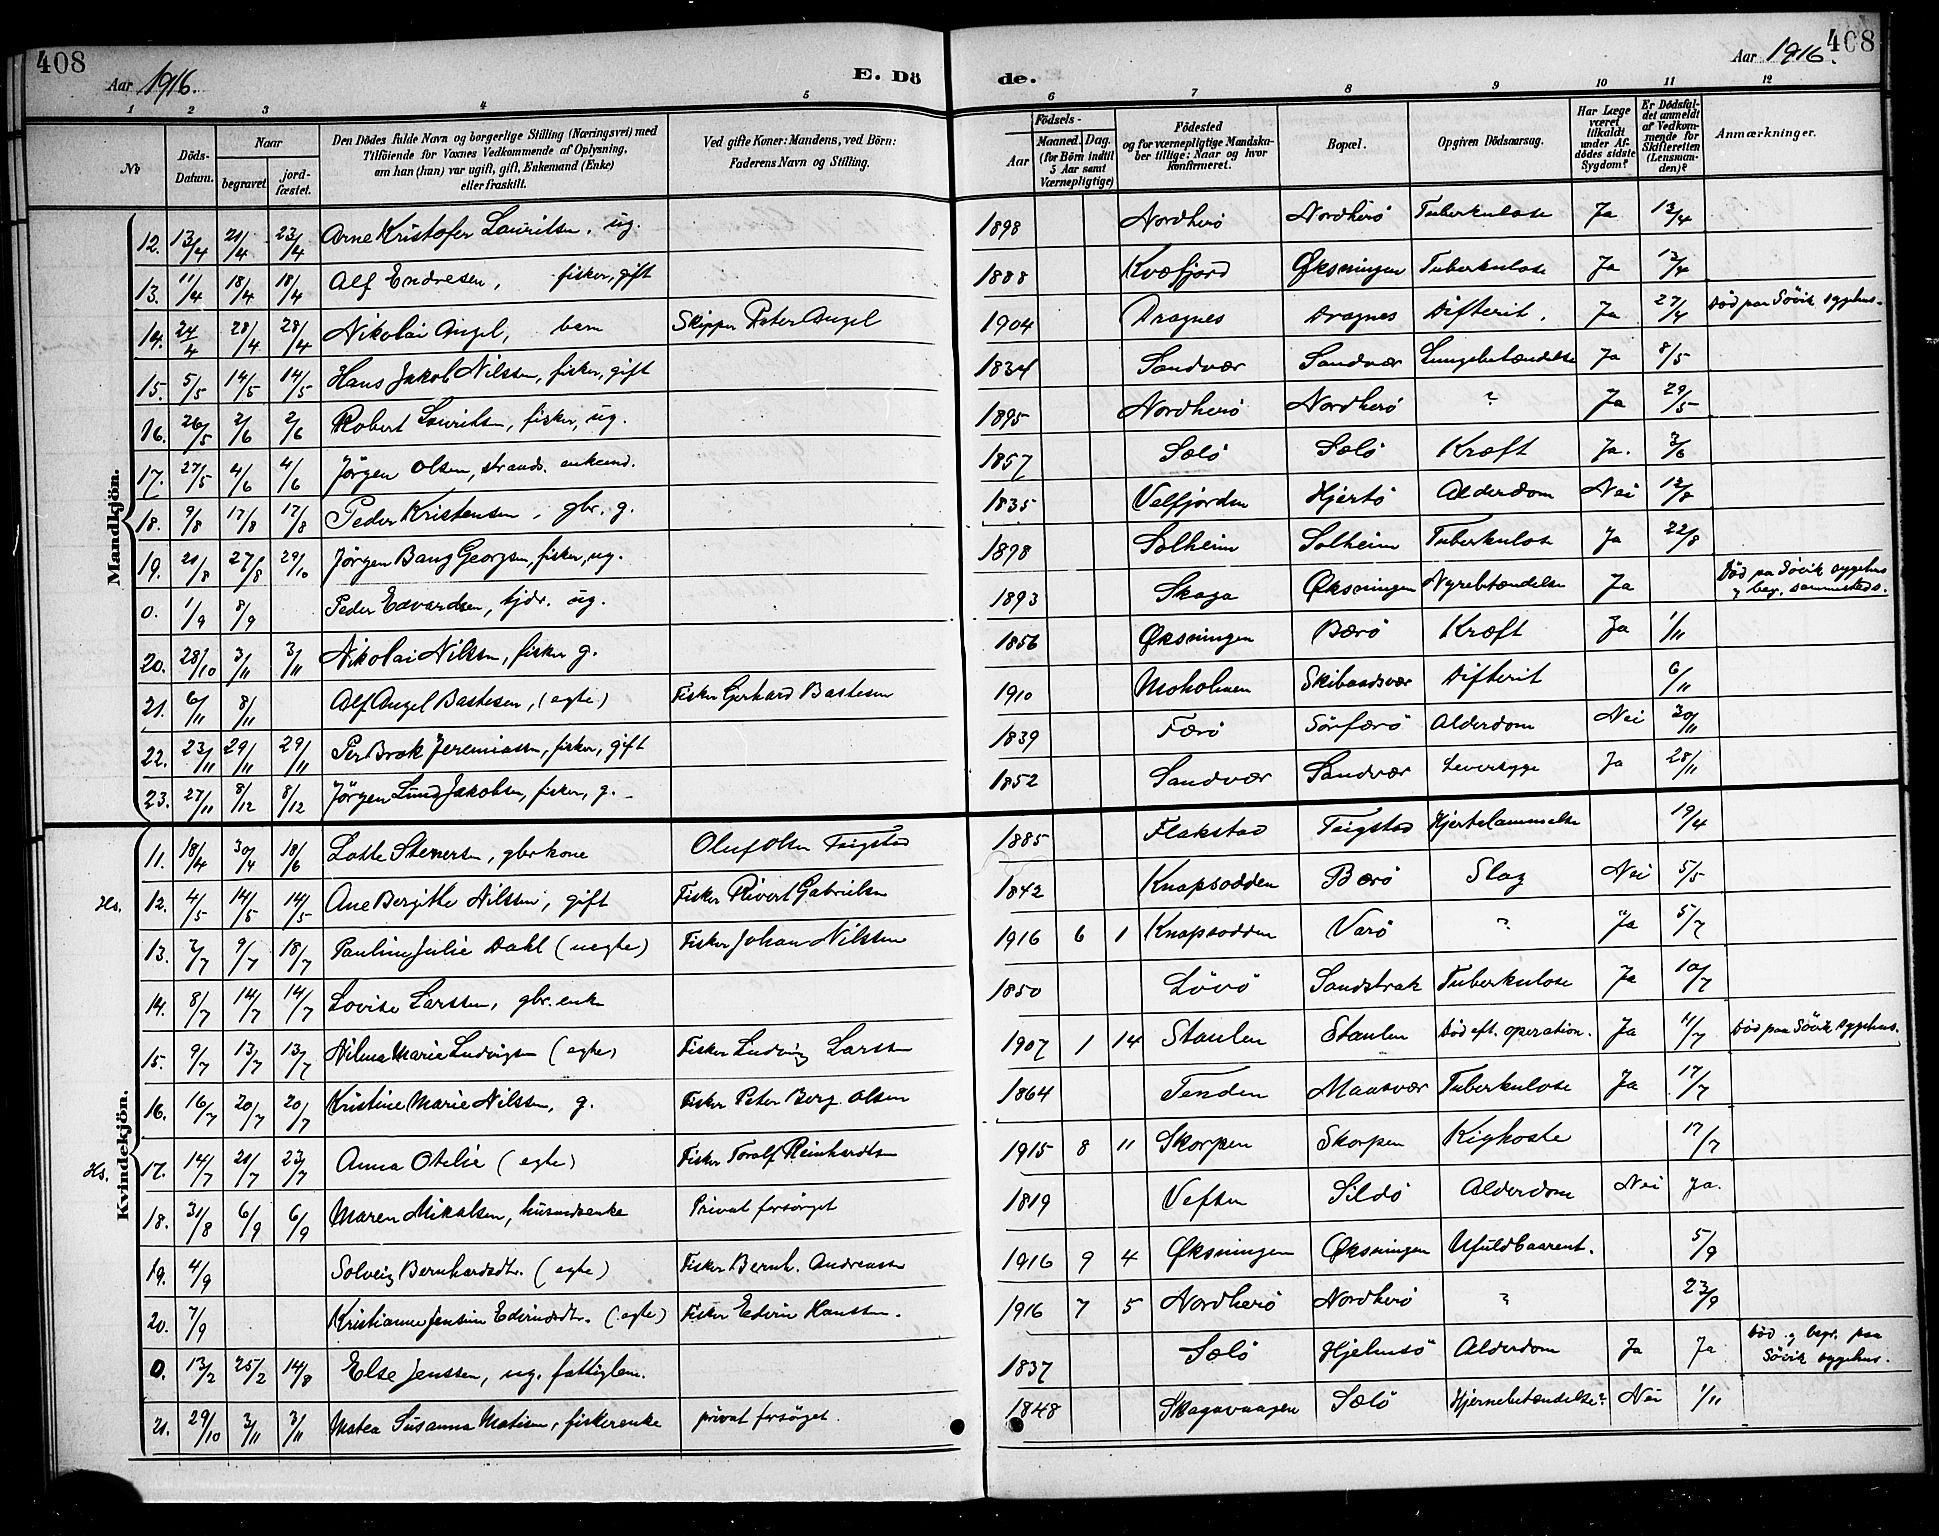 408
Aar 1916.
E. Dö
de.
Aar 1916.
408
1 2 3 4 5 6 7 8 9 10 11 12
№
Döds-Datum.
Naar
begravet.
jord-fæstet.
Den Dödes fulde Navn og borgerlige Stilling (Næringsvei) med
Tilföiende for Voxnes Vedkommende af Oplysning,
om han (hun) var ugift, gift, Enkemand (Enke)
eller fraskilt.
Ved gifte Koner: Mandens, ved Börn:
Faderens Navn og Stilling.
Födsels-
Aar
Maaned. Dag.
(for Börn indtil
5 Aar samt
Værnepligtige)
Födested
og for værnepligtige Mandska-
ber tillige: Naar og hvor
konfirmeret.
Bopæl.
Opgiven Dödsaarsag.
Har Læge
været
tilkaldt
under Af-
dödes sidste
Sygdom?
Er Dödsfal-
det anmeldt
af Vedkom-
mende for
Skifteretten
(Lensman-
den)?
Anmærkninger.
Mandkjön.
12. 13/4 21/4 23/4 Arne Kristofer Lauritsen, ug. 1898 Nordherö Nordherö Tuberkulose Ja 13/4
13. 11/4 18/4 18/4 Alf Endresen, fisker, gift 1888 Kvæfjord Øksningen Tuberkulose Ja 12/4
14. 24/4 28/4 28/4 Nikolai Angel, barn Skipper Peter Angel 1904 Dragnes Dragnes Difterit. Ja 27/4 Död paa Sövik sygehus.
15. 5/5 14/5 14/5 Hans Jakob Nilssen, fisker, gift 1834 Sandvær Sandvær Lungebetændelse Ja 8/5
16. 26/5 2/6 2/6 Robert Lauritsen, fisker, ug. 1895 Nordherö Nordherö ? Ja 29/5
17. 27/5 4/6 4/6 Jörgen Olsen, strands. enkemd. 1857 Sælö Sælö Kræft Ja. 3/6
18. 9/8 17/8 17/8 Peder Kristensen, gbr. g. 1835 Velfjorden Hjertö Alderdom Nei 12/8
19. 21/8 27/8 29/10 Jörgen Bang Georgsen, fisker, ug. 1898 Solheim Solheim Tuberkulose Ja 22/8
0. 1/9 8/9 Peder Edvardsen, tjdr. ug. 1893 Skaga Øksningen Nyrebetændelse Ja Död paa Sövik sygehus
og begr. sammesteds.
20. 28/10 3/11 3/11 Nikolai Nilsen, fisker g. 1856 Øksningen Bærö Kræft Ja 1/11
21. 6/11 8/11 Alf Angel Bastesen, (egte) Fisker Gerhard Bastesen 1910 Moholmen Skibaadsvær Difterit 6/11
22. 23/11 29/11 29/11 Per Brok Jeremiassen, fisker, gift 1839 Færö Sörfærö Alderdom Nei 30/11
23. 27/11 8/12 8/12 Jörgen Lund Jakobsen, fisker, g. 1852 Sandvær Sandvær Leversyge Ja 28/11
Kvindekjön.
11. 18/4 30/4 18/6 Lotte Steversen, gbrkone Oluf Olsen Teigstad 1885 Flakstad Teigstad Hjertelammelse 19/4
Hs. 12. 4/5 14/5 14/5 Ane Bergitte Nilssen, gift Fisker Rivert Gabrielsen 1842 Knapsodden Bærö Slag Nei 5/5
13. 3/7 9/7 18/7 Pauline Julie Dahl (uegte) Fisker Johan Nilssen 1916 6 1 Knapsodden Varö ? Ja 5/7
14. 8/7 14/7 14/7 Lovise Larssen, gbr. enke 1850 Lövö Sandstrak Tuberkulose Ja 10/7
15. 9/7 13/7 13/7 Nilma Marie Ludvigsen (egte) Fisker Ludvig Larssen 1907 1 14 Staulen Staulen Död eft. operation. Ja 11/7 Död paa Sövik sygehus.
16. 16/7 20/7 20/7 Kristine Marie Nilssen, g. Fisker Peter Berg Olsen 1864 Tenden Maasvær Tuberkulose Ja 17/7
Hs. 17. 14/7 21/7 23/7 Anna Otelie (egte) Fisker Toralf Reinhardtsen 1915 8 11 Skorpen Skorpen Kighoste 17/7
18. 31/8 6/9 6/9 Maren Mikalsen, husmdsenke Privat forsörget 1819 Vefsen Sildö Alderdom Nei Ja.
19. 4/9 Solveig Bernhardsdtr. (egte) Fisker Bernh. Andreassen 1916 9 4 Øksningen Øksningen Ufuldbaarent. 5/9
20. 7/9 Kristianne Jensine Edvindsdtr. (egte) Fisker Edvin Hanssen. 1916 7 5 Nordherö Nordherö ? 23/9
0. 13/2 25/2 14/8 Else Jenssen, ug. fattiglem. 1837 Sælö Hjelmsö Alderdom Ja Ja Död og begr. paa
Sövik sygehus.
21. 29/10 3/11 3/11 Matea Susanna Matisen, fiskerenke privat forsöget. 1848 Skagavaagen Sælö Hjernebetændelse? Nei 1/11